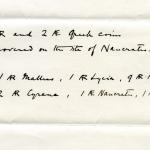 R and 2 Æ Greek coins
covered on the site of Naucratis
1 R Mallus, 1 R Lycia, 9 R
2 R Cyrene, 1 R Naucratis, 1